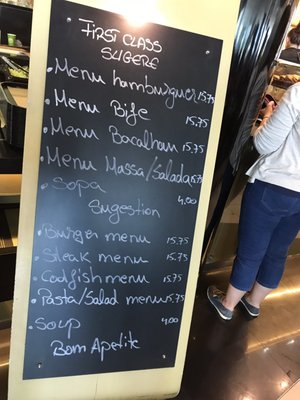 First Class
SUGERE
. Menu hamburguer 15.75
. Menu Bife 15.75
. Menu Bacalhau 15.75
. Menu Massa/Salada 15.75
. Sopa 4,00
Sugestion
. Burger menu 15.75
. Steak menu 15.75
. Codfish menu 15.75
. Pasta/Salad menu 15.75
. Soup 4,00
Bom Apetite